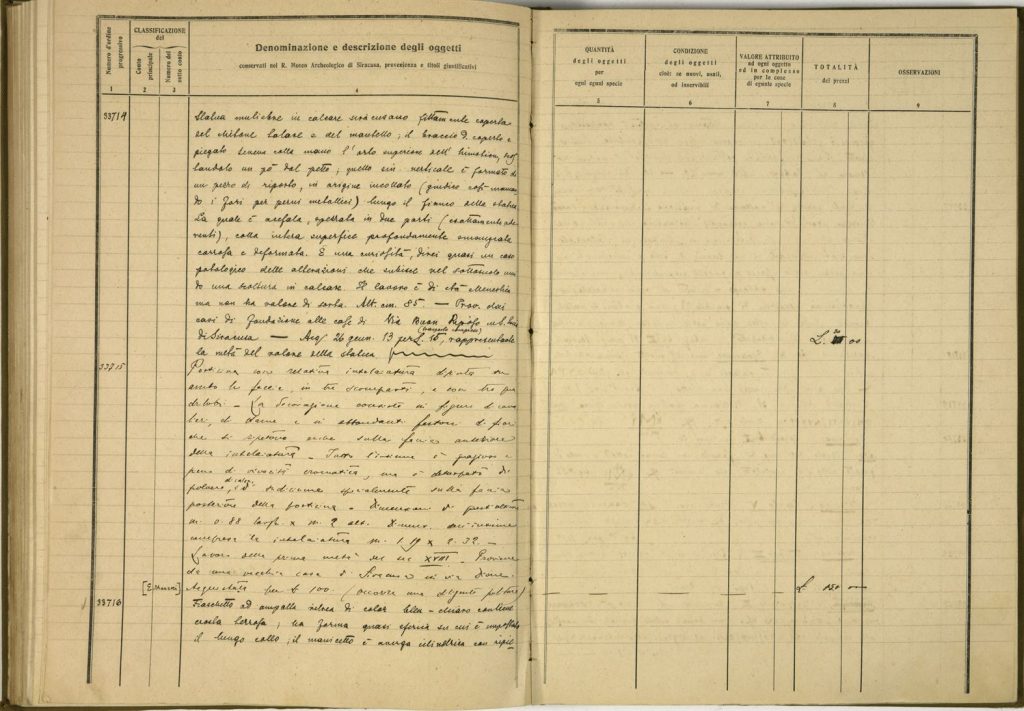 Numero d'ordine progressivo
CLASSIFICAZIONE
del
Conto principale
Numero del sotto conto
Denominazione e descrizione degli oggetti
conservati nel R. Museo Archeologico di Siracusa, provenienza e titoli giustificativi
1 2 3 4
33714
Statua muliebre in calcare siracusano fittamente coperta
del chitone talare e del mantello; il braccio d. coperto e
piegato teneva colla mano l'orlo superiore dell'himation,
landolo un pò dal petto; quello sin. verticale è formato di
un pezzo di riporto, in origine incollato (giudico così mancan
do i fori per perni metallici) lungo il fianco della statua
La quale è acefala, spezzata in due parti (esattamente ade
renti), colla intera superfice profondamente
corrosa e deformata. È una curiosità, direi quasi un caso
patologico delle alterazioni che subisce nel sottosuolo
do una scoltura in calcare. Il lavoro è di età
ma non ha valore di sorta. Alt. cm. 85. — Prov. dai
cavi di fondazione alle case di Via Buon Riposo in S. Lucia
di Siracusa — Acq. 26 genn. 13 per L. 15, rappresentante
(trasporto compreso)
la metà del valore della statua
33715
Porticina con relativa intelaiatura dipinta su
ambo le facce, in tre scomparti, e con tre
La decorazione consiste in figure di
di dame e in abbondanti festoni di fiori
che si ripetono anche sulla faccia anteriore
della intelaiatura — Tutto l'insieme è grazioso e
pieno di vivacità cromatica, ma è deturpata di
polvere, e di sudiciume specialmente sulla faccia
posteriore della porticina — Dimensioni di quest'ultima
m. 0.88 largh. x m. 2 alt. Dimens. dell'insieme
compresa la intelaiatura m. 1.19 x 2.32. —
Lavoro della prima metà del sec. XVIII. Proviene
da una vecchia casa di Siracusa in via
Acquistata per £ 100. (occorre una diligente pulitura)
33716
Fiaschetto ad ampolla vitrea di color bleu-chiaro contiene
crosta terrosa; ha forma quasi sferica su cui è impostato
il lungo collo; il manichetto è a verga cilindrica con
QUANTITÀ
degli oggetti
per
ogni egual specie
CONDIZIONE
degli oggetti
cioè: se nuovi, usati,
od inservibili
VALORE ATTRIBUITO
ad ogni oggetto
ed in complesso
per le cose
di eguale specie
TOTALITÀ
dei prezzi
OSSERVAZIONI
5 6 7 8 9
L. 00